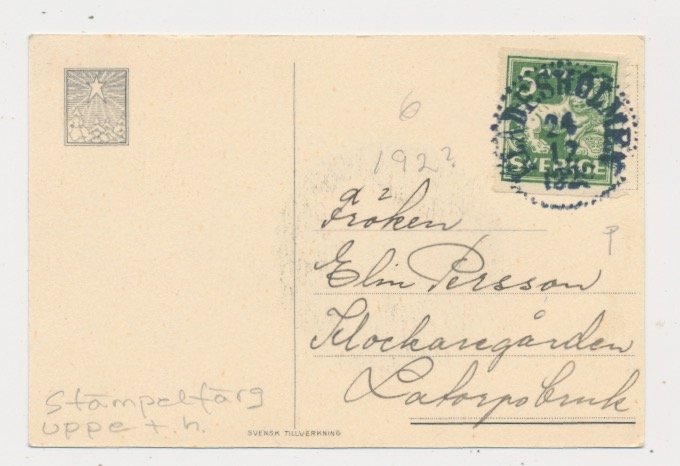 5
24
12
SVERIGE
6
192?
Fröken
Elin Persson
Klockaregården
Latorpsbruk
Stämpelfärg
uppe t.h.
SVENSK TILLVERKNING